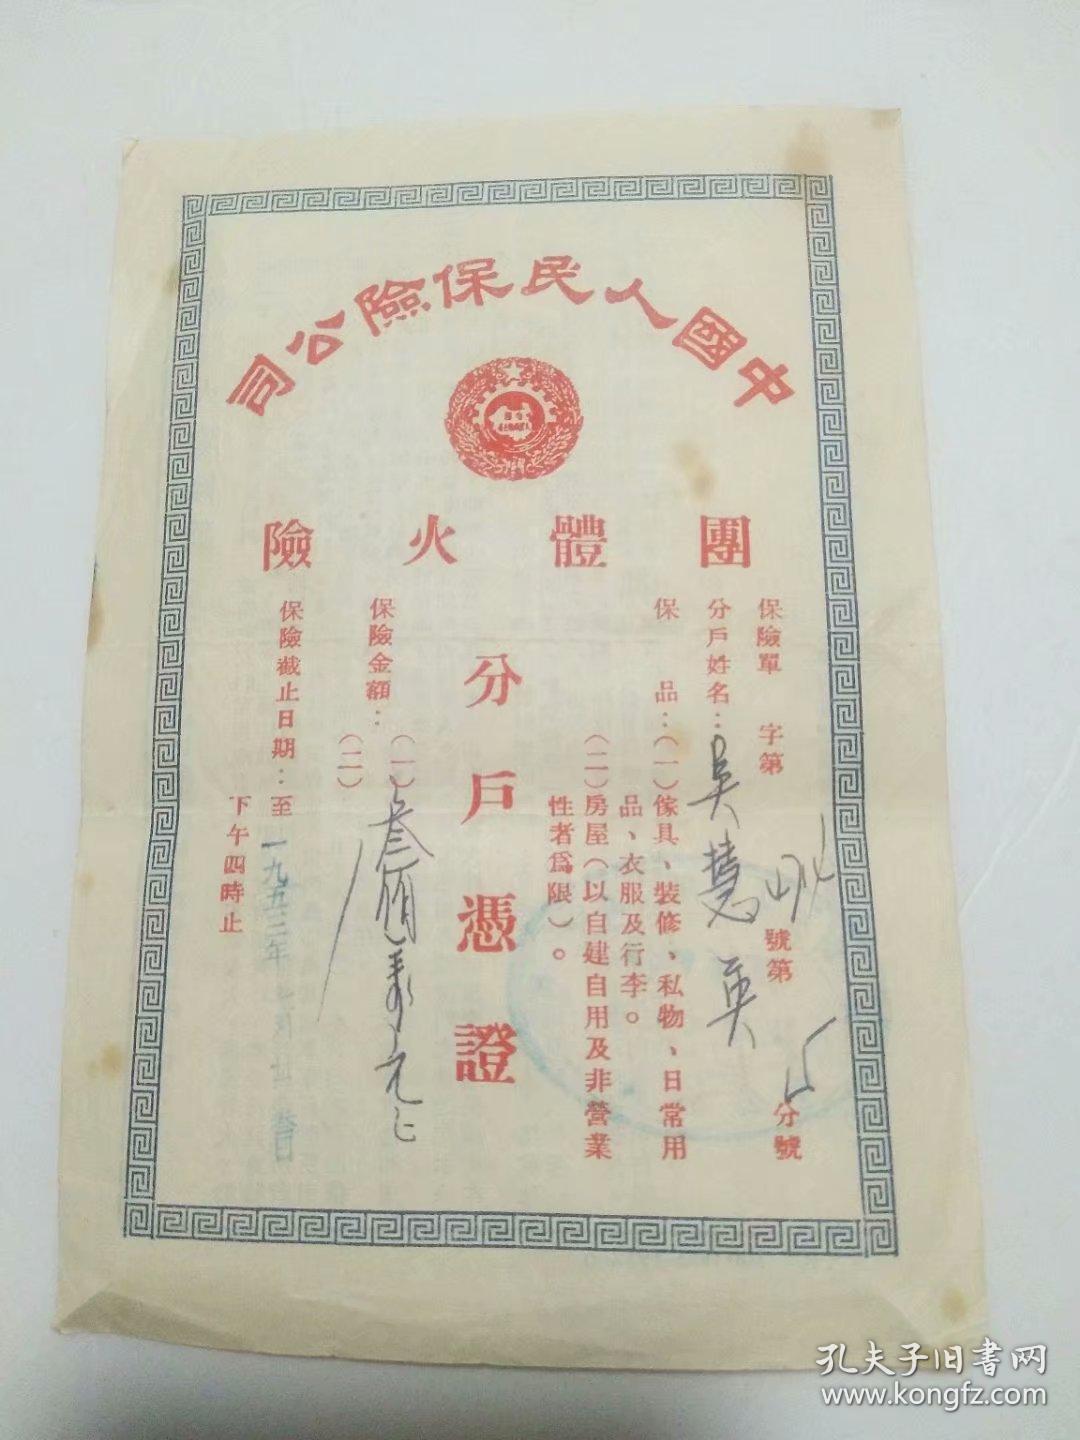 中國人民保險公司
團體火險
分戶憑證
保險單　字第　號第　分號
分戶姓名：吳慧英
保　品：(一)傢具、裝修、私物、日常用
品、衣服及行李。
(二)房屋(以自建自用及非營業
性者爲限)。
保險金額：(一)叁佰萬元
(二)
保險截止日期：至一九五三年七月廿叁日
下午四時止
孔夫子旧書网
www.kongfz.com